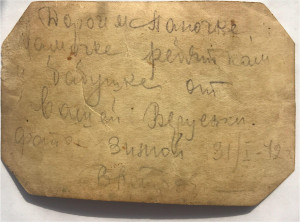 Дорогим Папочке,
Мамочке, ребяткам
Бабушке от
вашей Верусеки.
Фото зимой 31/I-42